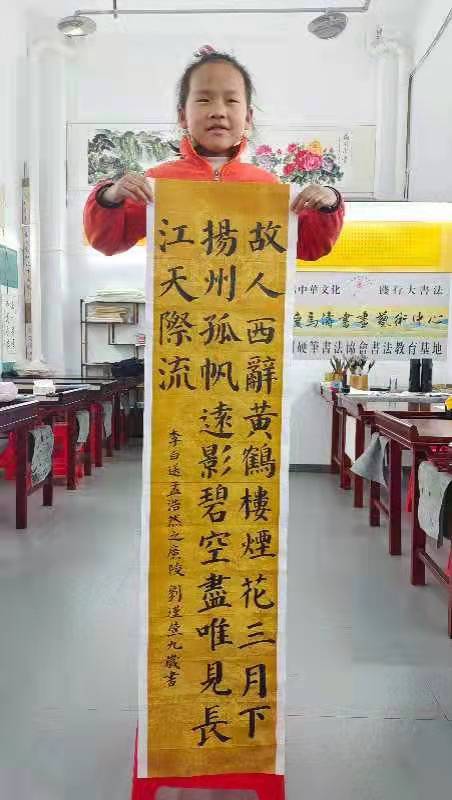 故人西辭黃鶴樓煙花三月下
揚州孤帆遠影碧空盡唯見長
江天際流
李白送孟浩然之廣陵 劉瑾萱九歲書
中華文化 踐行大書法
馬濤書畫藝術中心
硬筆書法協會書法教育基地